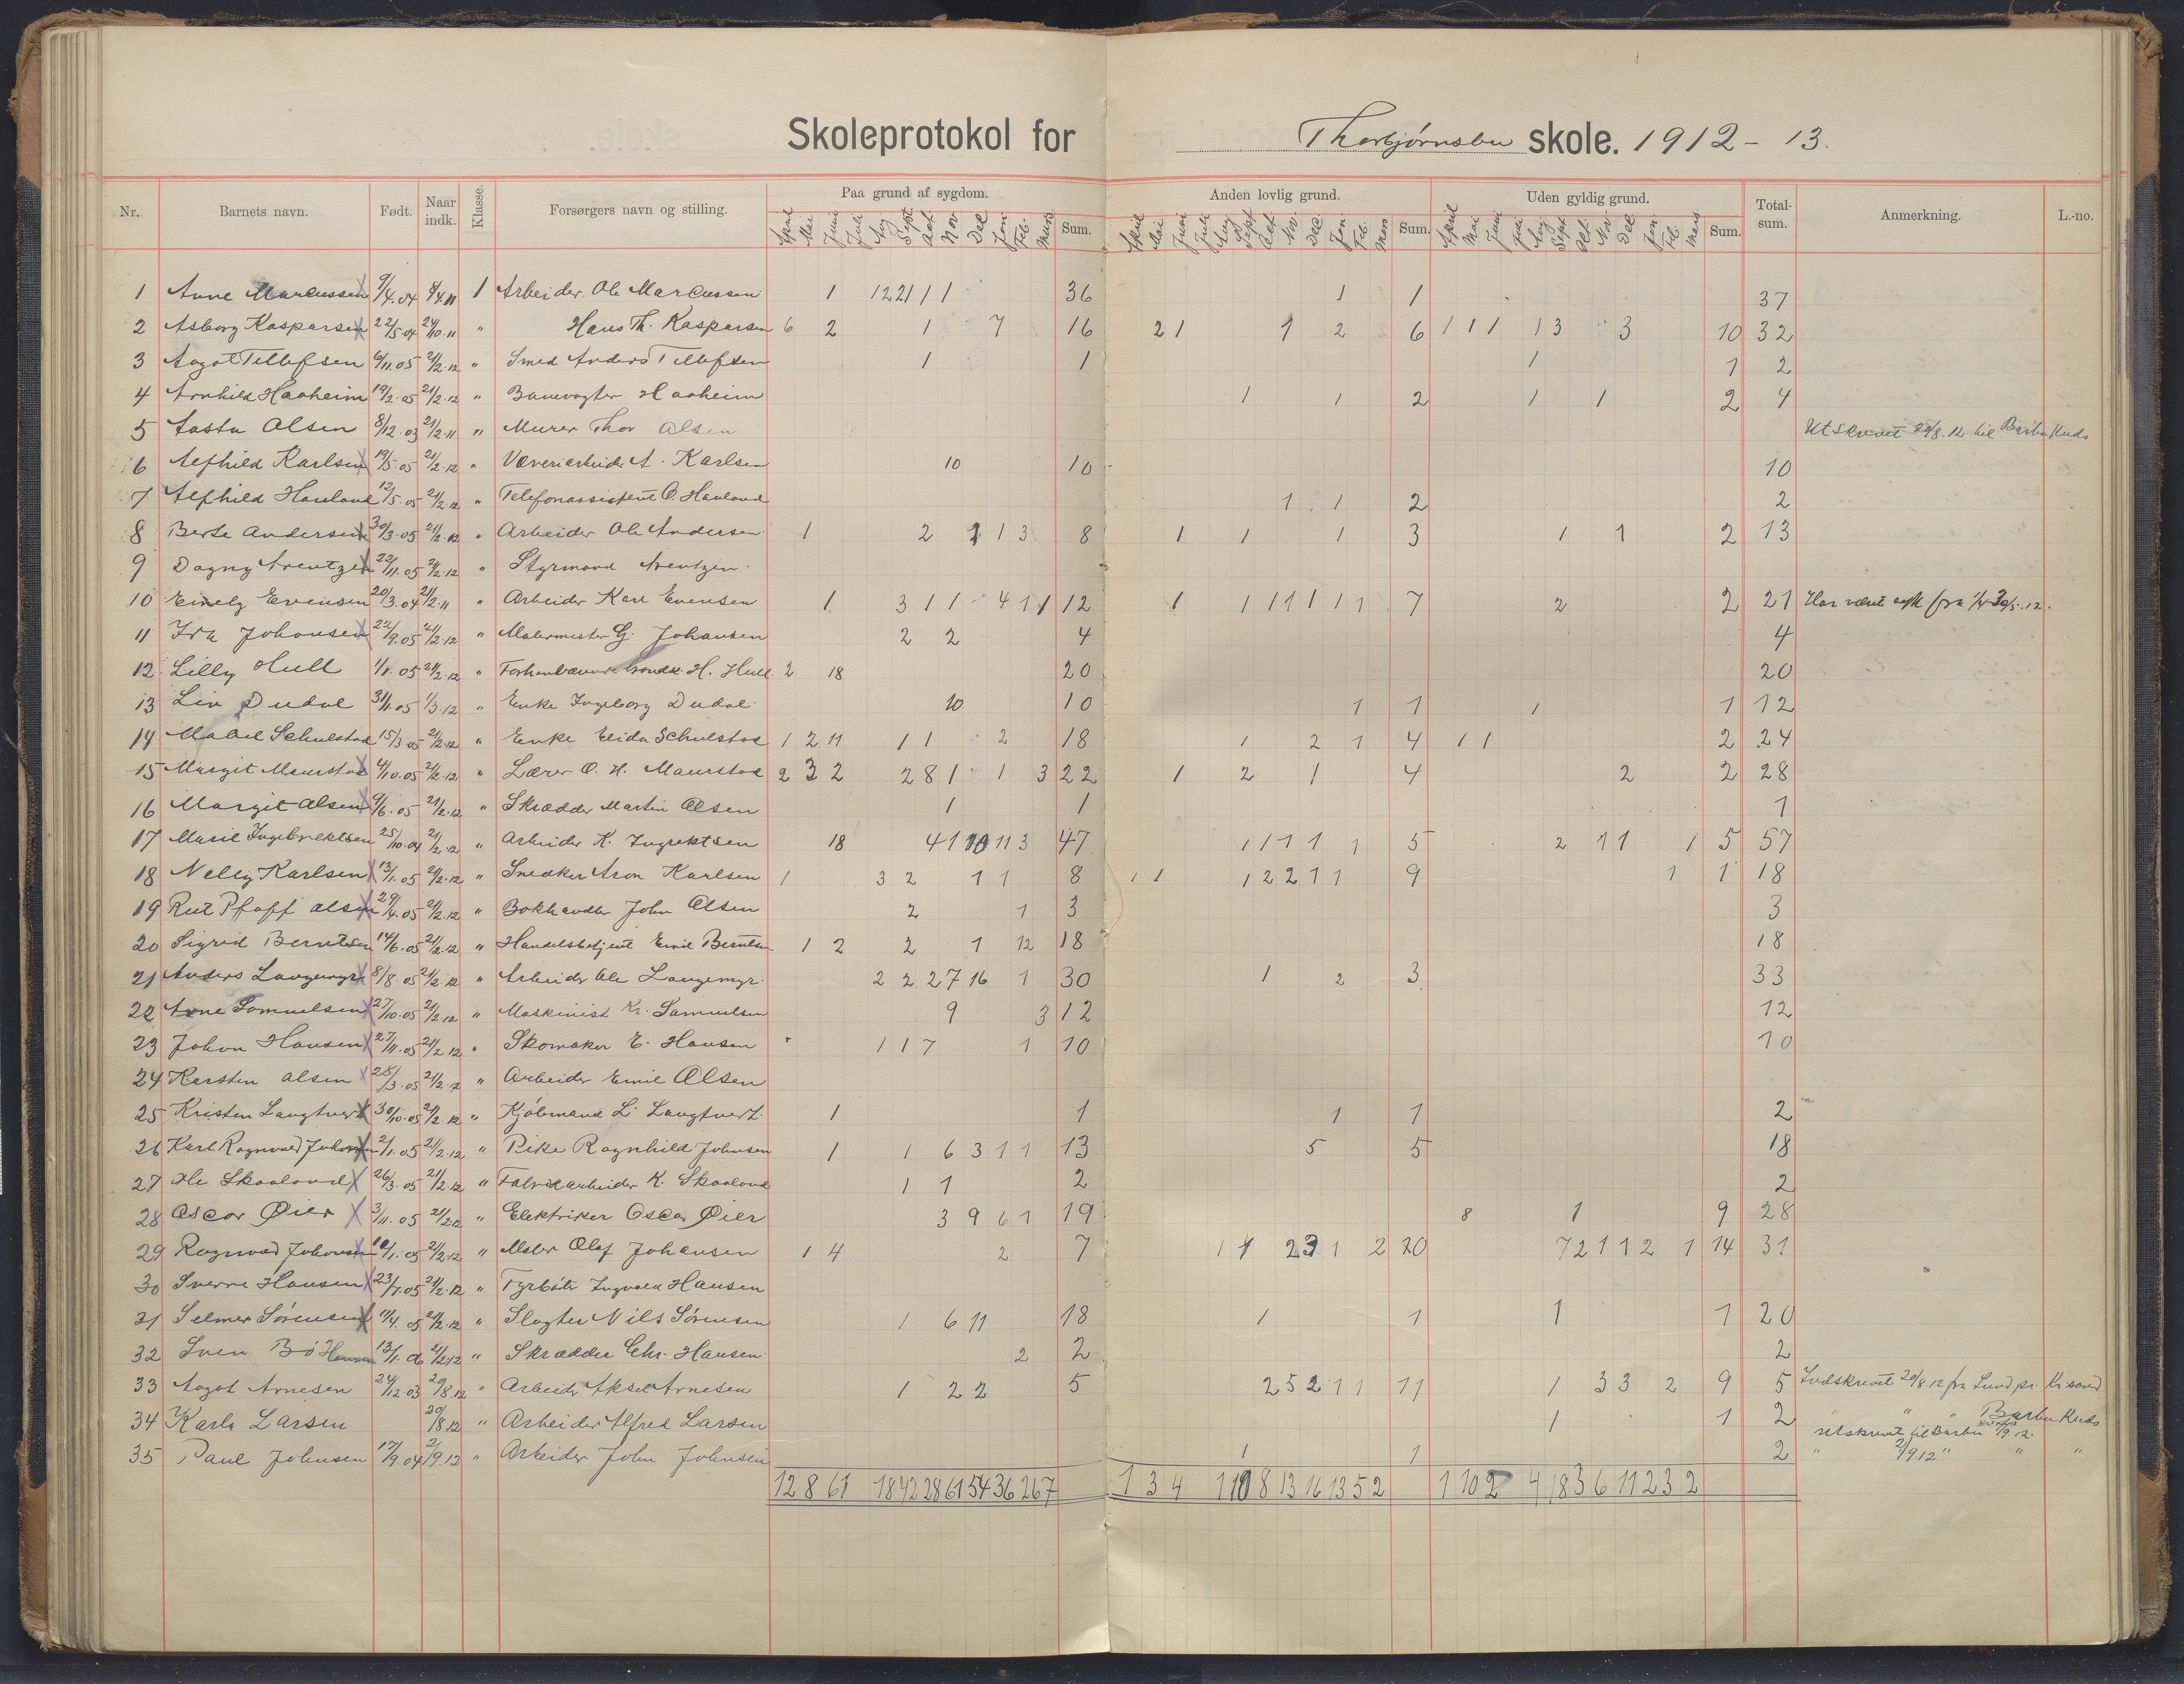 Skoleprotokol for Thorbjørnsbu skole. 1912 - 13.
Nr. Barnets navn. Født. Naar indk. Klasse. Forsørgers navn og stilling. Paa grund af sygdom. Anden lovlig grund. Uden gyldig grund. Total-sum. Anmerkning. L.-no.
April Mai Juni Juli Aug Sept Oct Nov Dec Jan Feb. Mars Sum. April Mai Juni Juli Aug Sept Oct Nov. Dec Jan Feb. Mars Sum. April Mai Juni Juli Aug Sept Oct. Nov. Dec Jan Feb. Mars. Sum.
1 Anne Marcussen 9/4.04 9/4.11 1 Arbeider Ole Marcussen 1 12 21 1 1 36 1 1 37
2 Asborg Kaspersen 22/5.04 24/10.11 " Hans Th. Kaspersen 6 2 1 7 16 2 1 1 2 6 1 1 1 1 3 3 10 32
3 Aagot Tellefsen 6/11.05 21/2.12 " Smed Anders Tellefsen 1 1 1 1 2
4 Arnhild Haaheim 19/2.05 21/2.12 " Banevogter Haaheim 1 1 2 1 1 2 4
5 Aasta Olsen 8/12.03 21/2.11 " Murer Thor Olsen Utskrevet 20/8.12 til Barbu Kreds
6 Alfhild Karlsen 19/5.05 21/2.12 " Væveriarbeider A. Karlsen 10 10 10
7 Alfhild Hauland 12/5.05 21/2.12 " Telefonassistent O. Hauland 1 1 2 2
8 Berte Andersen 30/3.05 21/2.12 " Arbeider Ole Andersen 1 2 1 1 3 8 1 1 1 3 1 1 2 13
9 Dagny Arentzen 22/11.05 21/2.12 " Styrmand Arentzen.
10 Emely Evensen 20/3.04 21/2.11 " Arbeider Karl Evensen 1 3 1 1 4 1 1 12 1 1 1 1 1 1 1 7 2 2 21 Har været syk fra 1/4-30/5.12.
11 Ira Johansen 22/9.05 21/2.12 " Malermester G. Johansen 2 2 4 4
12 Lilly Hull 1/1.05 21/2.12 " H. Hull 2 18 20 20
13 Liv Dudal 31/1.05 1/3.12 " Enke Ingeborg Dudal 10 10 1 1 1 1 12
14 Mabel Schulstad 15/3.05 21/2.12 " Enke Elida Schulstad 1 2 11 1 1 2 18 1 2 1 4 1 1 2 24
15 Margit Maurstad 4/10.05 21/2.12 " Lærer O. H. Maurstad 2 3 2 2 8 1 1 3 22 1 2 1 4 2 2 28
16 Margit Olsen 9/6.05 21/2.12 " Skrædder Martin Olsen 1 1 1
17 Marie Ingebrektsen 25/10.04 21/2.12 " Arbeider K. Ingrektsen 18 4 1 10 11 3 47 1 1 1 1 1 5 2 1 1 1 5 57
18 Nelly Karlsen 13/1.05 21/2.12 " Snedker Aron Karlsen 1 3 2 1 1 8 1 1 1 2 2 1 1 9 1 1 18
19 Rut Pfaff Olsen 29/4.05 21/2.12 " Bokhandler John Olsen 2 1 3 3
20 Sigrid Berntsen 14/6.05 21/2.12 " Handelsbetjent Emil Berntsen 1 2 2 1 12 18 18
21 Anders Langemyr 8/8.05 21/2.12 " Arbeider Ole Langemyr. 2 2 2 7 16 1 30 1 2 3 33
22 Arne Samuelsen 27/10.05 21/2.12 " Maskinist Kr. Samuelsen 9 3 12 12
23 Johan Hansen 27/11.05 21/2.12 " Skomaker E. Hansen 1 1 7 1 10 10
24 Karsten Olsen 28/3.05 21/2.12 " Arbeider Emil Olsen
25 Kristen Langtvet 30/10.05 21/2.12 " Kjøbmand L. Langtvet. 1 1 1 1 2
26 Karl Ragnvald Johnsen 2/1.05 21/2.12 " Pike Ragnhild Johnsen 1 1 6 3 1 1 13 5 5 18
27 Ole Skaaland 26/3.05 21/2.12 " Fabrikarbeider K. Skaaland 1 1 2 2
28 Oscar Øier 3/11.05 21/2.12 " Elektriker Oscar Øier 3 9 6 1 19 8 1 9 28
29 Ragnvald Johansen 10/1.05 21/2.12 " Maler Olaf Johansen 1 4 2 7 1 1 2 3 1 2 10 7 2 1 1 2 1 14 31
30 Sverre Hansen 23/7.05 21/2.12 " Fyrbøter Ingvald Hansen
31 Selmer Sørensen 11/4.05 21/2.12 " Slagter Nils Sørensen 1 6 11 18 1 1 1 1 20
32 Sven Bø Hansen 13/1.06 21/2.12 " Skrædder Chr. Hansen 2 2 2
33 Aagot Arnesen 24/12.03 20/8.12 " Arbeider Aksel Arnesen 1 2 2 5 2 5 2 1 1 11 1 3 3 2 9 5 Indskrevet 20/8.12 fra Lund pr. Kr.sand
34 Karla Larsen 20/8.12 " Arbeider Alfred Larsen 1 1 2 " " " Barbu Kreds
Utskrevet til Barbu Kreds 1/9.12.
35 Paul Johnsen 17/9.04 2/9.12 " Arbeider John Johnsen 1 1 2 " 2/9 12 " " "
12 8 61 18 42 28 61 54 36 26 7 1 3 4 1 10 8 13 16 13 5 2 1 10 2 4 18 3 6 11 2 3 2